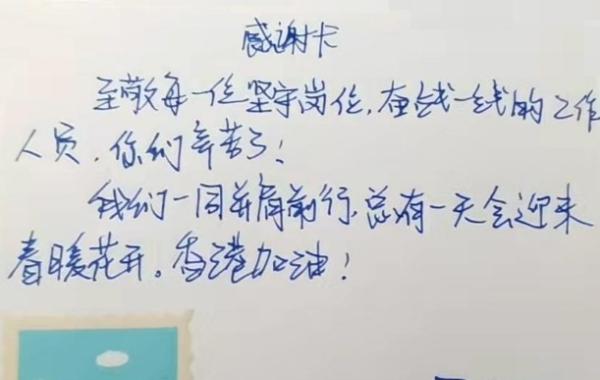 感谢卡
至敬每一位坚守岗位,奋战一线的工作
人员,你们辛苦了!
我们一同并肩前行,总有一天会迎来
春暖花开。香港加油!